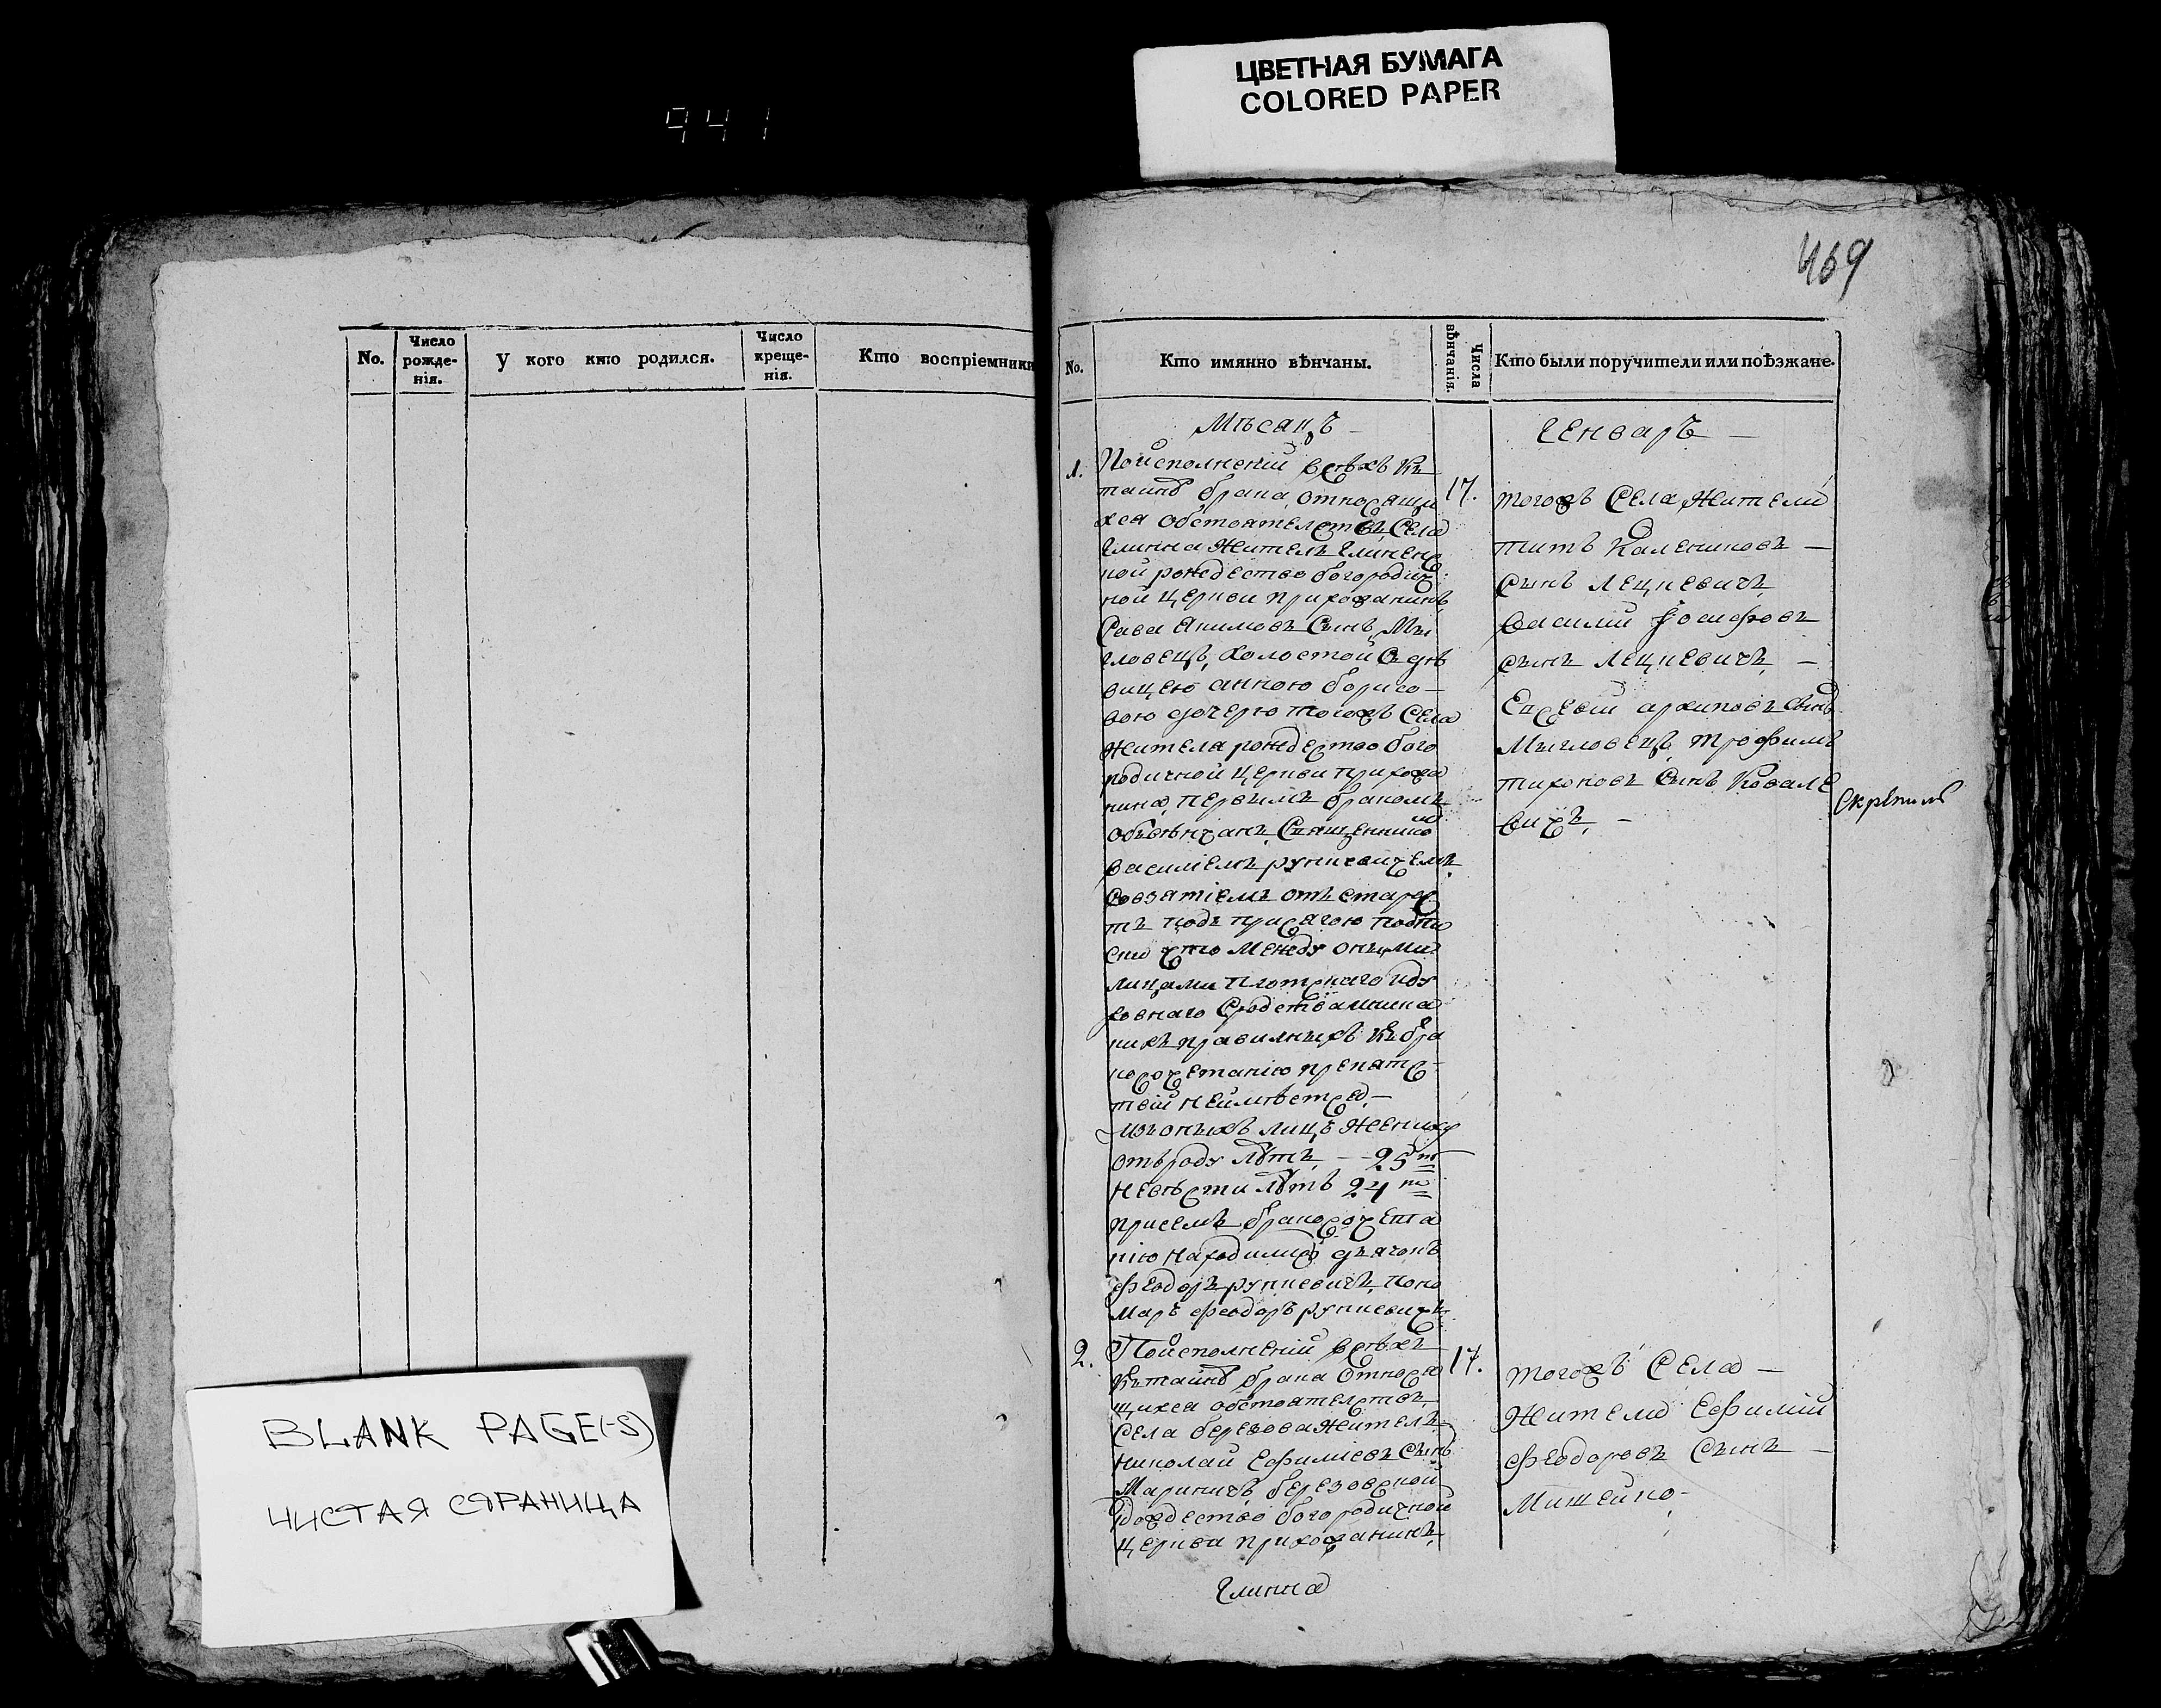 ЦВЕТНАЯ БУМАГА
COLORED PAPER
941
469
No.
Число рожде-нія.
У кого кто родился.
Число креще-нія.
Кто воспріемники
No.
Кто имянно вѣнчаны.
Числа вѣнчанія.
Кто были поручители или поѣзжане.
Мѣсяцъ –
Генварь –
1.
Поисполненіи всѣхъ къ
таинѣ брака относящи
хся обстоятелствъ, Села
Глинна Жителъ Глинена
ной рождество богородич
ной церкви прихожанинъ
Сава Якимовъ Сынъ Мы
гловецъ, холостой Съ дѣ
вицею анною борисо–
вою дочерю тогожъ Села
Жителя рождество бого
родичной церкви прихожа
нина, первымъ бракомъ
обвѣнчанъ, Священнико
василіемъ рупневичемъ
Совзятіемъ отъ старос
тъ подъ присягою подпи
ски что Между онымы
лицами плотскаго иду
ховнаго Сродства иника
кихъ правилныхъ къ бра
косочетанію препятс
твій неимѣется, –
изъ оныхъ лицъ Жениху
отъ роду лѣтъ, – 25
невѣсти лѣтъ 24
присемъ бракосочета
нію находились дьячокъ
феодоръ рупневичъ, поно
Марь феодоръ рупневичъ
17.
тогожъ Села Жители
титъ Калениковъ –
Сынъ Лецневичъ,
василій Іосифовъ
Сынъ Лецневичъ, –
Евсевій архиповъ Сынъ
Мыгловецъ, трофимъ
тихоновъ Сынъ Ковале
вичъ, –
Скрѣпилъ
2.
Поисполненіи всѣхъ
къ таинѣ брака Относя
щихся обстоятелствъ,
Села березова Жителъ
Николай Ефиміевъ Сынъ
Маричичъ березовской
Рождество богородичной
церкви прихожанинъ,
17.
тогожъ Села –
Жители Ефимій
феодоровъ Сынъ –
Мишейко –
Глинна
BLANK PAGE(-S)
ЧИСТАЯ СТРАНИЦА